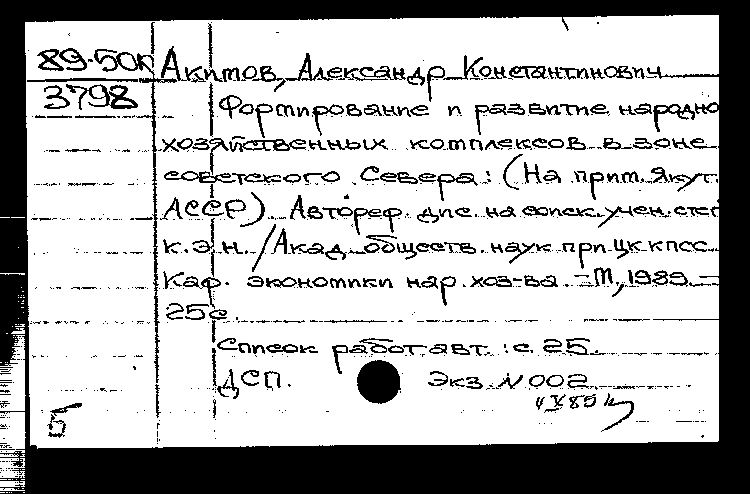 89-50к Акимов, Александр Константинович
3798 Формирование и развитие народно
хозяйственных комплексов в зоне
советского Севера: (На прим. Якут.
АССР). Автореф. дис. на соиск. учен. степ
к.э.н. / Акад. обществ. наук при ЦК КПСС
Каф. экономики нар. хоз-ва. - М, 1989. -
25с.
Список работ авт.: с. 25.
ДСП. Экз. №002
5